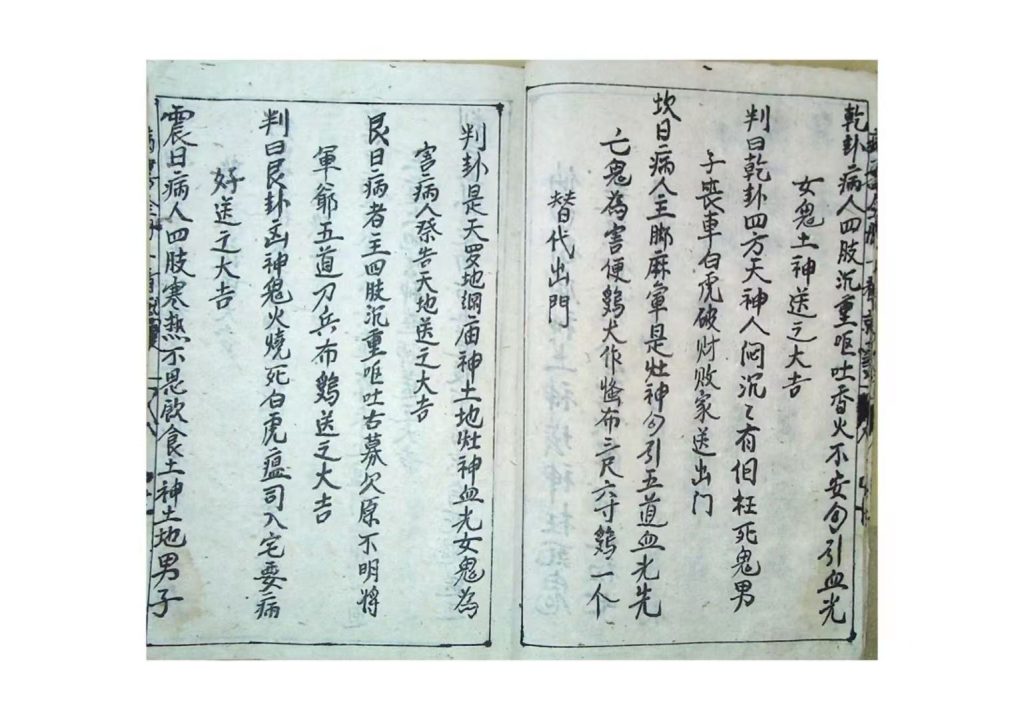 乾卦病人四肢沉重呕吐香火不安勾引血光
女鬼土神送之大吉
判曰乾卦四方天神人闷沉〻有個枉死鬼男
子丧車白虎破财败家送出门
坎日病人主脚麻軍是灶神勾引五道血光先
亡鬼為害便鷄犬作怪布三尺六寸鷄一个
替代出門
判卦是天罗地網庙神土地灶神血光女鬼為
害病人祭告天地送之大吉
艮日病者王四肢沉重呕吐古墓欠原不明將
軍爺五道刀兵布鷄送之大吉
判曰艮卦凶神鬼火燒死白虎瘟司入宅要病
好送之大吉
震日病人四肢寒热不思飲食土神土地男子